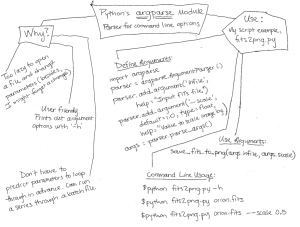 Python's argparse Module
Parser for command line options
Why?
Too lazy to open
a file and change
parameters (besides,
I might forget a change)
User friendly
Prints out argument
options with -h
Don't have to
predict parameters to loop
through in advance. Can run
a series through a batch file
Use:
My script example,
fits2png.py
Define Arguments:
import argparse
parser = argparse.ArgumentParser()
parser.add_argument('infile',
help="Input FITS file")
parser.add_argument('--scale',
default=1.0, type=float,
help="Value to scale image by")
args = parser.parse_args()
Use Arguments:
save_fits_to_png(args.infile, args.scale)
Command Line Usage:
$python fits2png.py -h
$python fits2png.py orion.fits
$python fits2png.py orion.fits --scale 0.5